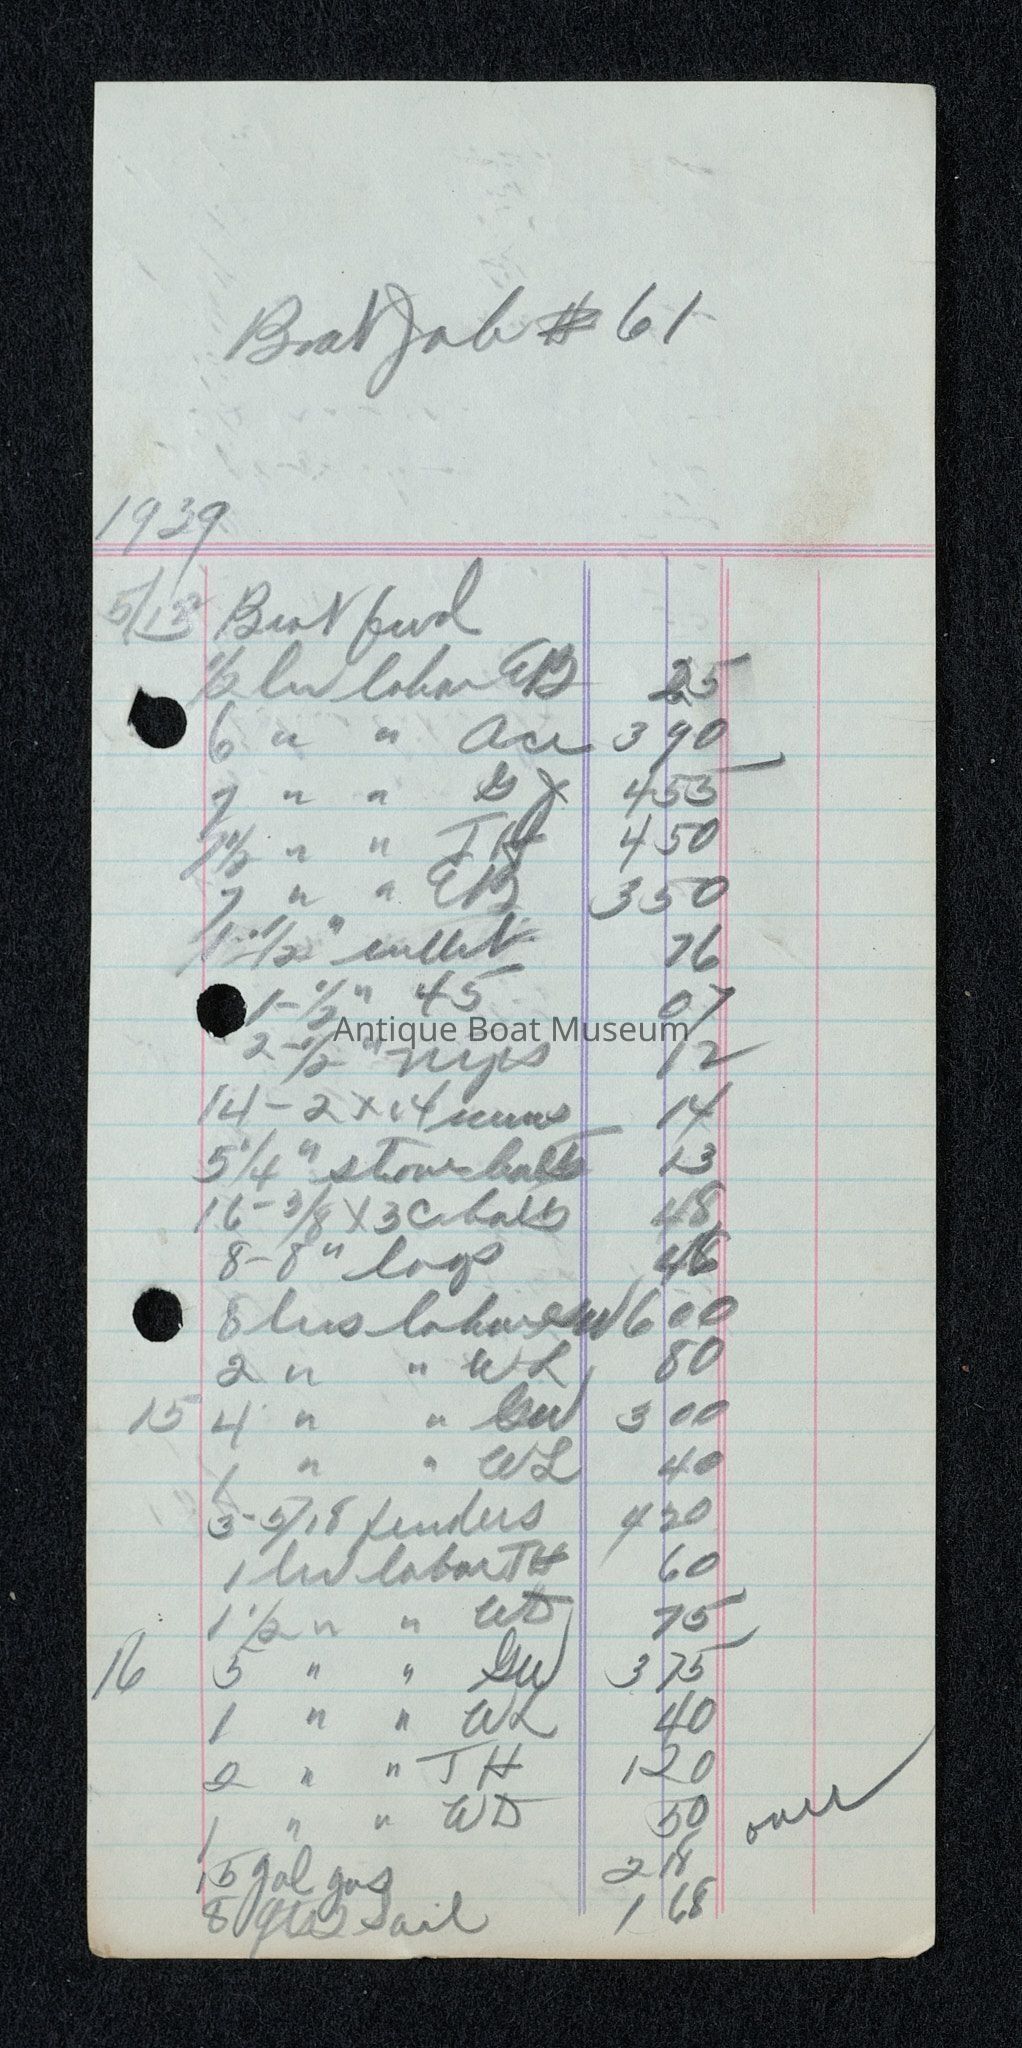 Boat Job # 61
1939
5/12 Boat fwd
1/2 hr labor EB 25
6 " " Ace 3 90
7 " " G 4 55
7 1/2 " " TH 4 50
7 " " EB 3 50
1-1/2" 76
1-1/2" 45 07
2-1/2" nips 12
14-2 x 14 screws 14
5 1/4" stove bolts 13
16-3/8 x 3 C bolts 48
8-8" lags 48
8 hrs labor GW 6 00
2 " " WL 80
15 4 " " GW 3 00
1 " " WL 40
3-5/18 fenders 4 20
1 hr labor TH 60
1 1/2 " " WD 75
16 5 " " GW 3 75
1 " " WL 40
2 " " TH 1 20
1 " " WD 50
over
15 gal gas 2 18
8 qts oil 1 68
Antique Boat Museum